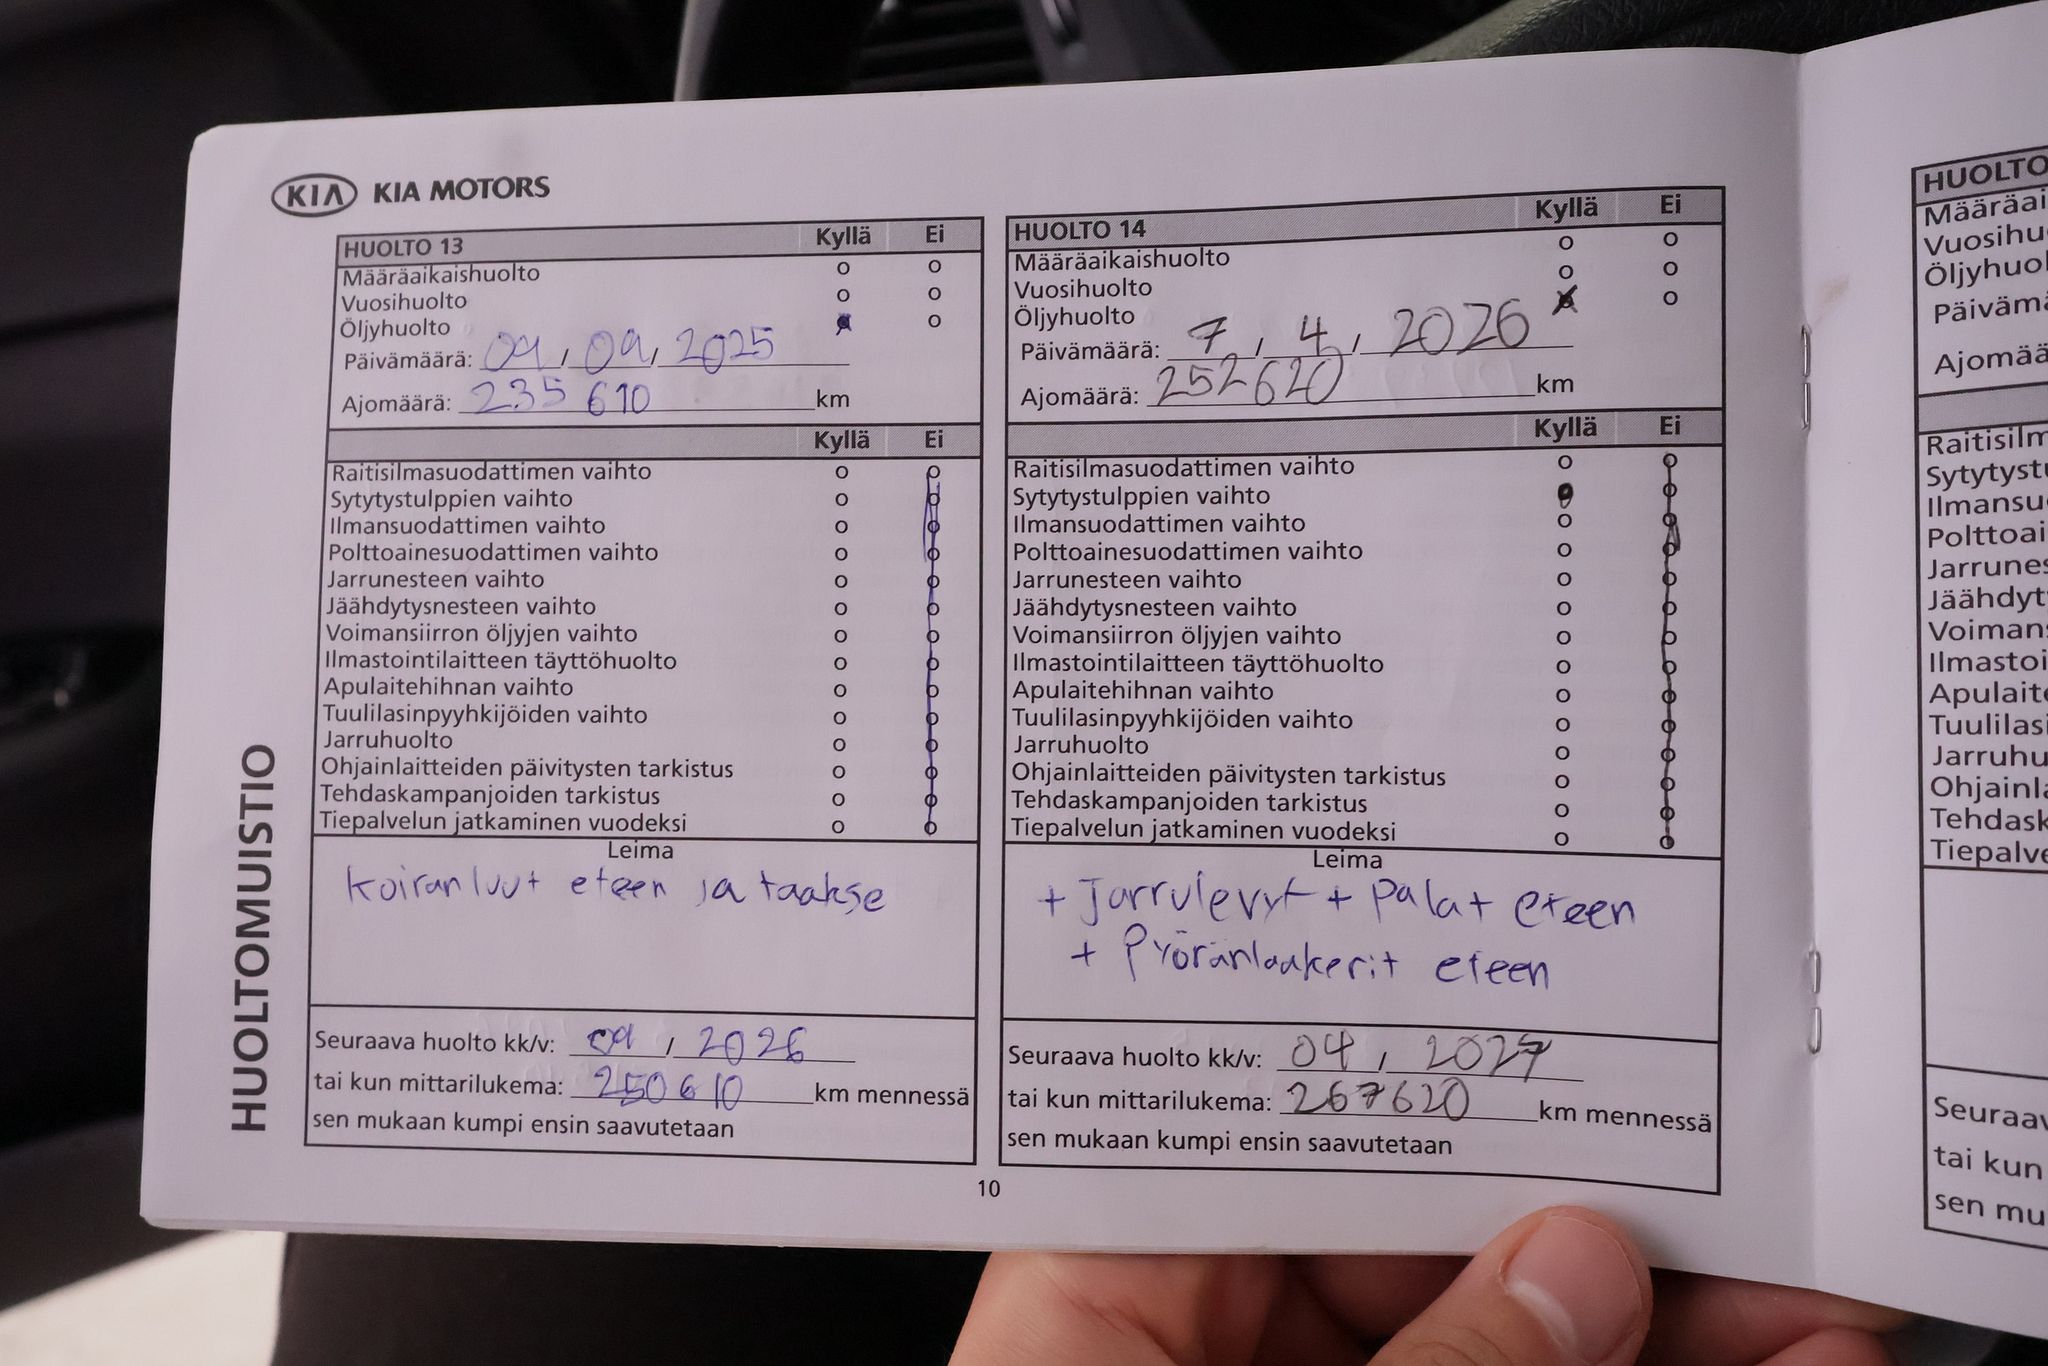 KIA KIA MOTORS
HUOLTOMUISTIO
HUOLTO 13 Kyllä Ei
Määräaikaishuolto o o
Vuosihuolto o o
Öljyhuolto o
Päivämäärä: 09, 09, 2025
Ajomäärä: 235 610 km
Kyllä Ei
Raitisilmasuodattimen vaihto o o
Sytytystulppien vaihto o o
Ilmansuodattimen vaihto o o
Polttoainesuodattimen vaihto o o
Jarrunesteen vaihto o o
Jäähdytysnesteen vaihto o o
Voimansiirron öljyjen vaihto o o
Ilmastointilaitteen täyttöhuolto o o
Apulaitehihnan vaihto o o
Tuulilasinpyyhkijöiden vaihto o o
Jarruhuolto o o
Ohjainlaitteiden päivitysten tarkistus o o
Tehdaskampanjoiden tarkistus o o
Tiepalvelun jatkaminen vuodeksi o o
Leima
Koiranluut eteen ja taakse
Seuraava huolto kk/v: 09, 2026
tai kun mittarilukema: 250610 km mennessä
sen mukaan kumpi ensin saavutetaan
HUOLTO 14 Kyllä Ei
Määräaikaishuolto o o
Vuosihuolto o o
Öljyhuolto o
Päivämäärä: 7, 4, 2026
Ajomäärä: 252620 km
Kyllä Ei
Raitisilmasuodattimen vaihto o o
Sytytystulppien vaihto o o
Ilmansuodattimen vaihto o o
Polttoainesuodattimen vaihto o o
Jarrunesteen vaihto o o
Jäähdytysnesteen vaihto o o
Voimansiirron öljyjen vaihto o o
Ilmastointilaitteen täyttöhuolto o o
Apulaitehihnan vaihto o o
Tuulilasinpyyhkijöiden vaihto o o
Jarruhuolto o o
Ohjainlaitteiden päivitysten tarkistus o o
Tehdaskampanjoiden tarkistus o o
Tiepalvelun jatkaminen vuodeksi o o
Leima
+ Jarrulevyt + palat eteen
+ Pyöränlaakerit eteen
Seuraava huolto kk/v: 04, 2027
tai kun mittarilukema: 267620 km mennessä
sen mukaan kumpi ensin saavutetaan
10
HUOLTO
Määräai
Vuosihu
Öljyhuol
Päivämä
Ajomää
Raitisilm
Sytytyst
Ilmansu
Polttoai
Jarrunes
Jäähdyt
Voimans
Ilmastoi
Apulait
Tuulilasi
Jarruhu
Ohjainl
Tehdask
Tiepalve
Seuraav
tai kun
sen mu